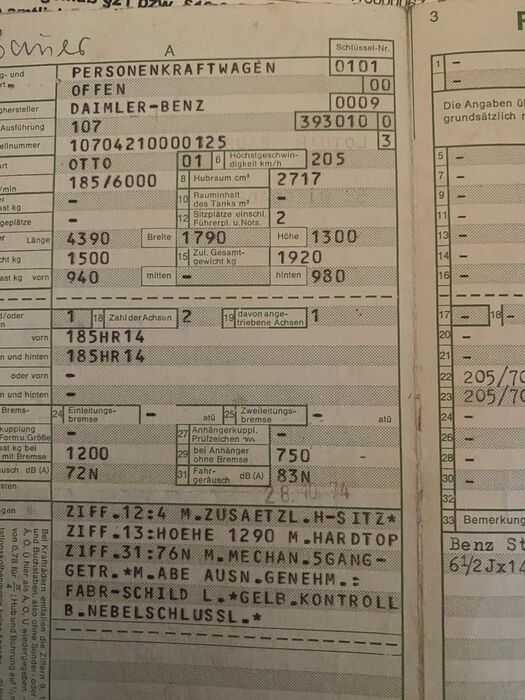 A
Schlüssel-Nr.
g- und PERSONENKRAFTWAGEN 0101
rt OFFEN 00
ghersteller DAIMLER-BENZ 0009
Ausführung 107 393010 0
ellnummer 10704210000125 3
art OTTO 01 6 Höchstgeschwin-digkeit km/h 205
/min 185/6000 8 Hubraum cm³ 2717
ast kg - 10 Rauminhalt des Tanks m³ -
geplätze - 12 Sitzplätze einschl. Führerpl. u. Nots. 2
Länge 4390 Breite 1790 Höhe 1300
cht kg 1500 15 Zul. Gesamt-gewicht kg 1920
ast kg vorn 940 mitten - hinten 980
d/oder 1 18 Zahl der Achsen 2 19 davon ange-triebene Achsen 1
vorn 185HR14
n und hinten 185HR14
oder vorn -
n und hinten -
Brems- 24 Einleitungs-bremse - atü 25 Zweileitungs-bremse - atü
kupplung Form u. Größe - 27 Anhängerkuppl. Prüfzeichen -
ast kg bei mit Bremse 1200 29 bei Anhänger ohne Bremse 750
usch dB (A) 72N 31 Fahr-geräusch dB (A) 83N
28.10.74
ZIFF.12:4 M.ZUSAETZL.H-SITZ*
ZIFF.13:HOEHE 1290 M.HARDTOP
ZIFF.31:76N M.MECHAN.5GANG-
GETR.*M.ABE AUSN.GENEHM.:
FABR-SCHILD L.*GELB.KONTROLL
B.NEBELSCHLUSSL.*
Bei Krafträdern entfallen die Ziffern 9,
und Buchstaben, also ohne Sonder- oder
A, O, U wiedergegeben.
3
1 -
-
Die Angaben ü
grundsätzlich n
5 -
7 -
9 -
11 -
13 -
14 -
16 -
17 - 18 -
20 -
21 -
22 205/70
23 205/70
24 -
26 -
28 -
30 -
32
33 Bemerkung
Benz St
6½Jx14